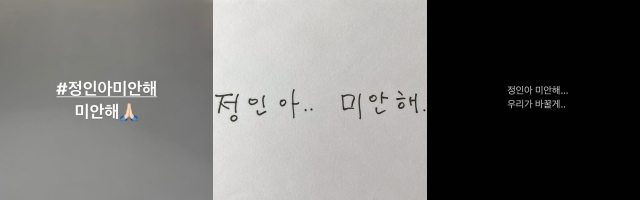 #정인아미안해
미안해🙏🏻
정인아.. 미안해.
정인아 미안해...
우리가 바꿀게..